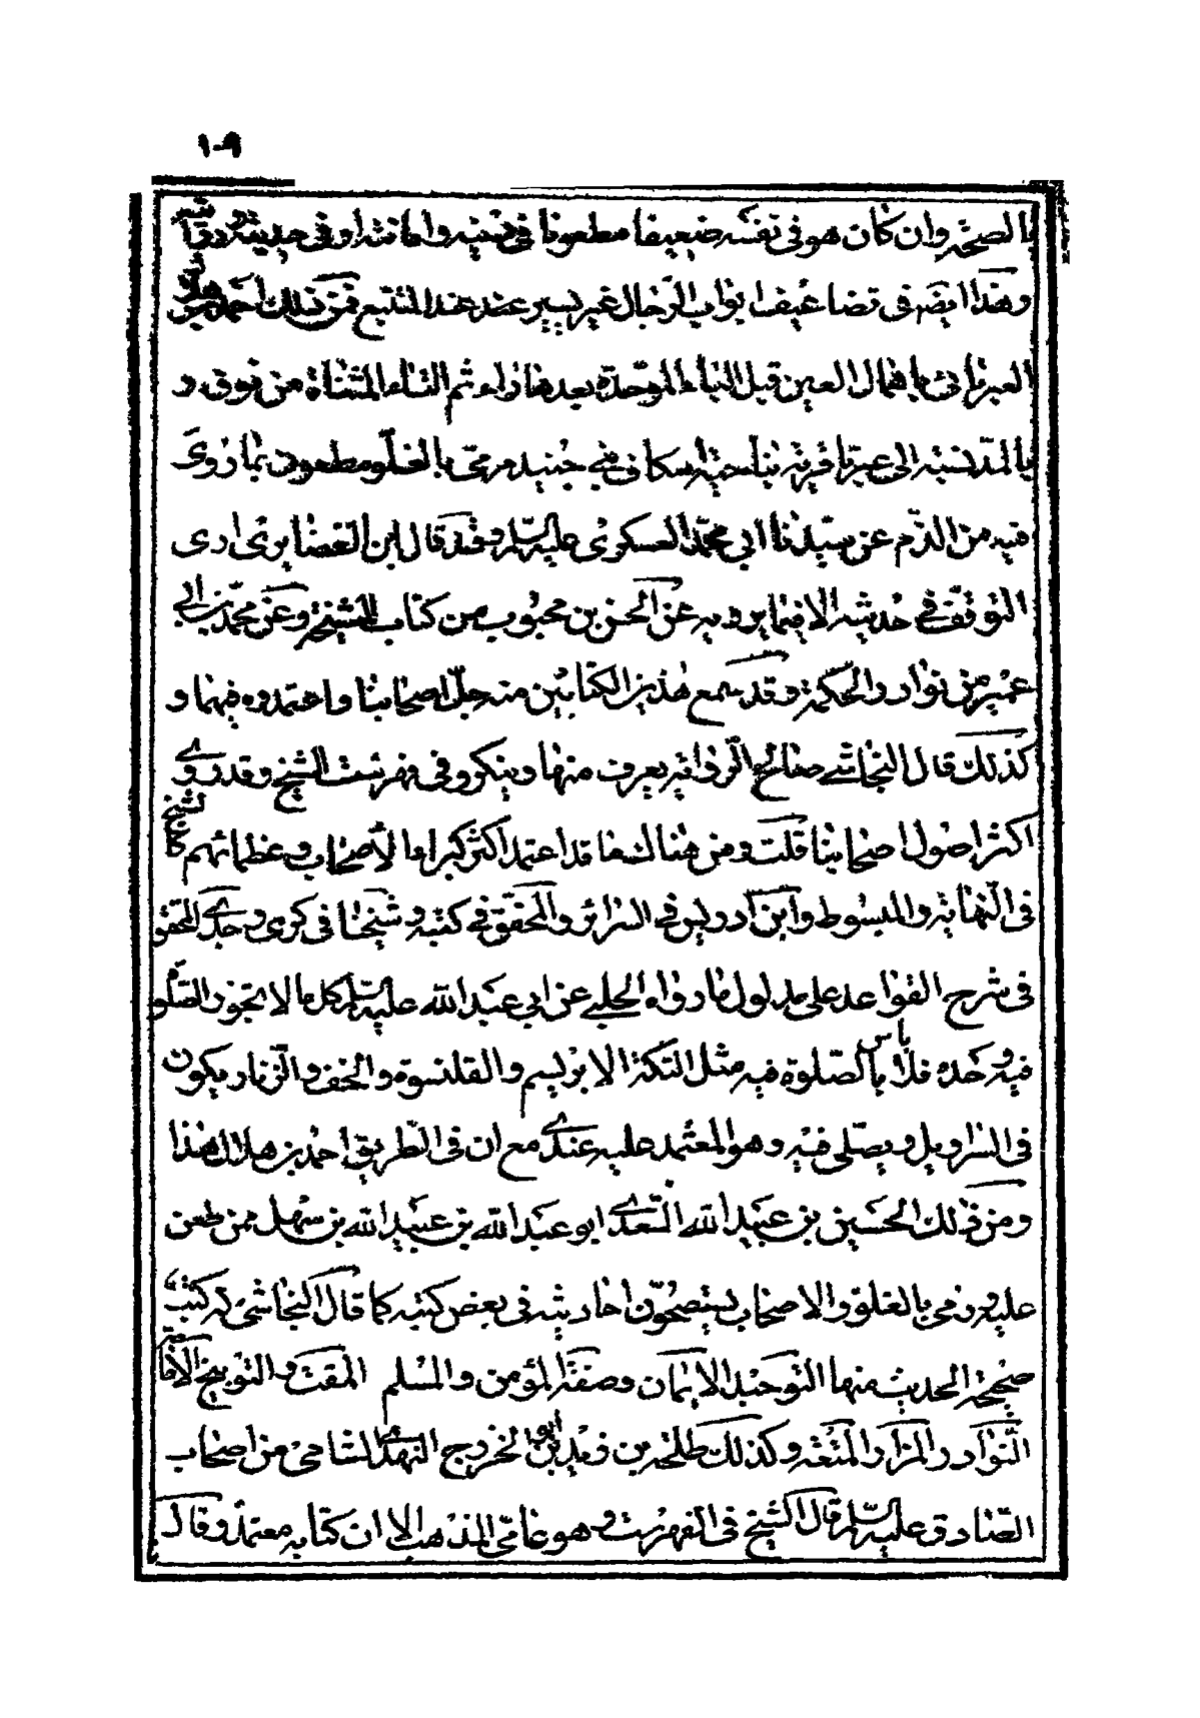 ١٠٩
بالصحة وان كان هو في نفسه ضعيفا مطعونا في دينه وامانته او في حديثه وروايته
وهذا ايضا في تضاعيف ابواب الرجال غير يسير عند عند المتتبع فمن ذلك احمد بن هلال
العبرتائي باهمال العين قبل الباء الموحدة بعدها راء ثم التاء المثناة من فوق و
بالمد نسبة الى عبرتا قرية بناحية اسكاف بني جنيد مرمي بالغلو مطعون بما روى
فيه من الذم عن سيدنا ابي محمد العسكري عليه السلم وقد قال ابن الغضايري ارى
التوقف في حديثه الا فيما يرويه عن الحسن بن محبوب من كتاب المشيخة وعن محمد بن ابي
عمير من نوادر والحكمة وقد سمع هذين الكتابين منه جل اصحابنا واعتمدوه فيهما و
كذلك قال النجاشي صالح الرواية يعرف منها وينكر وفي فهرست الشيخ وقد روى
اكثر اصول اصحابنا قلت ومن هنالك ما قد اعتمد اكثر كبراء الاصحاب وعظمائهم كالشيخ
في النهاية والمبسوط وابن ادريس في السرائر والمحقق في كتبه وشيخنا في كرى وجدي المحقق
في شرح القواعد على مدلول ما رواه الحلبي عن ابي عبد الله عليه السلم كل ما لا تجوز الصلو
فيه وحده فلا باس بالصلوة فيه مثل التكة الابريسم والقلنسوة والخف والزنار يكون
في السراويل ويصلى فيه وهو المعتمد عليه عندي مع ان في الطريق احمد بن هلال هذا
ومن ذلك الحسين بن عبيد الله السعدي ابو عبد الله بن عبيد الله بن سهل ممن طعن
عليه ورمي بالغلو والاصحاب يستصحون احاديثه في بعض كتبه كما قال النجاشي له كتب
صحيحة الحديث منها التوحيد الايمان وصفة المؤمن والمسلم المقت والتوبيخ الامامة
النوادر المزار المتعة وكذلك طلحة بن زيد ابو الخزرج النهدي الشامي من اصحاب
الصادق عليه السلم قال الشيخ في الفهرست وهو عامي المذهب الا ان كتابه معتمد وقال